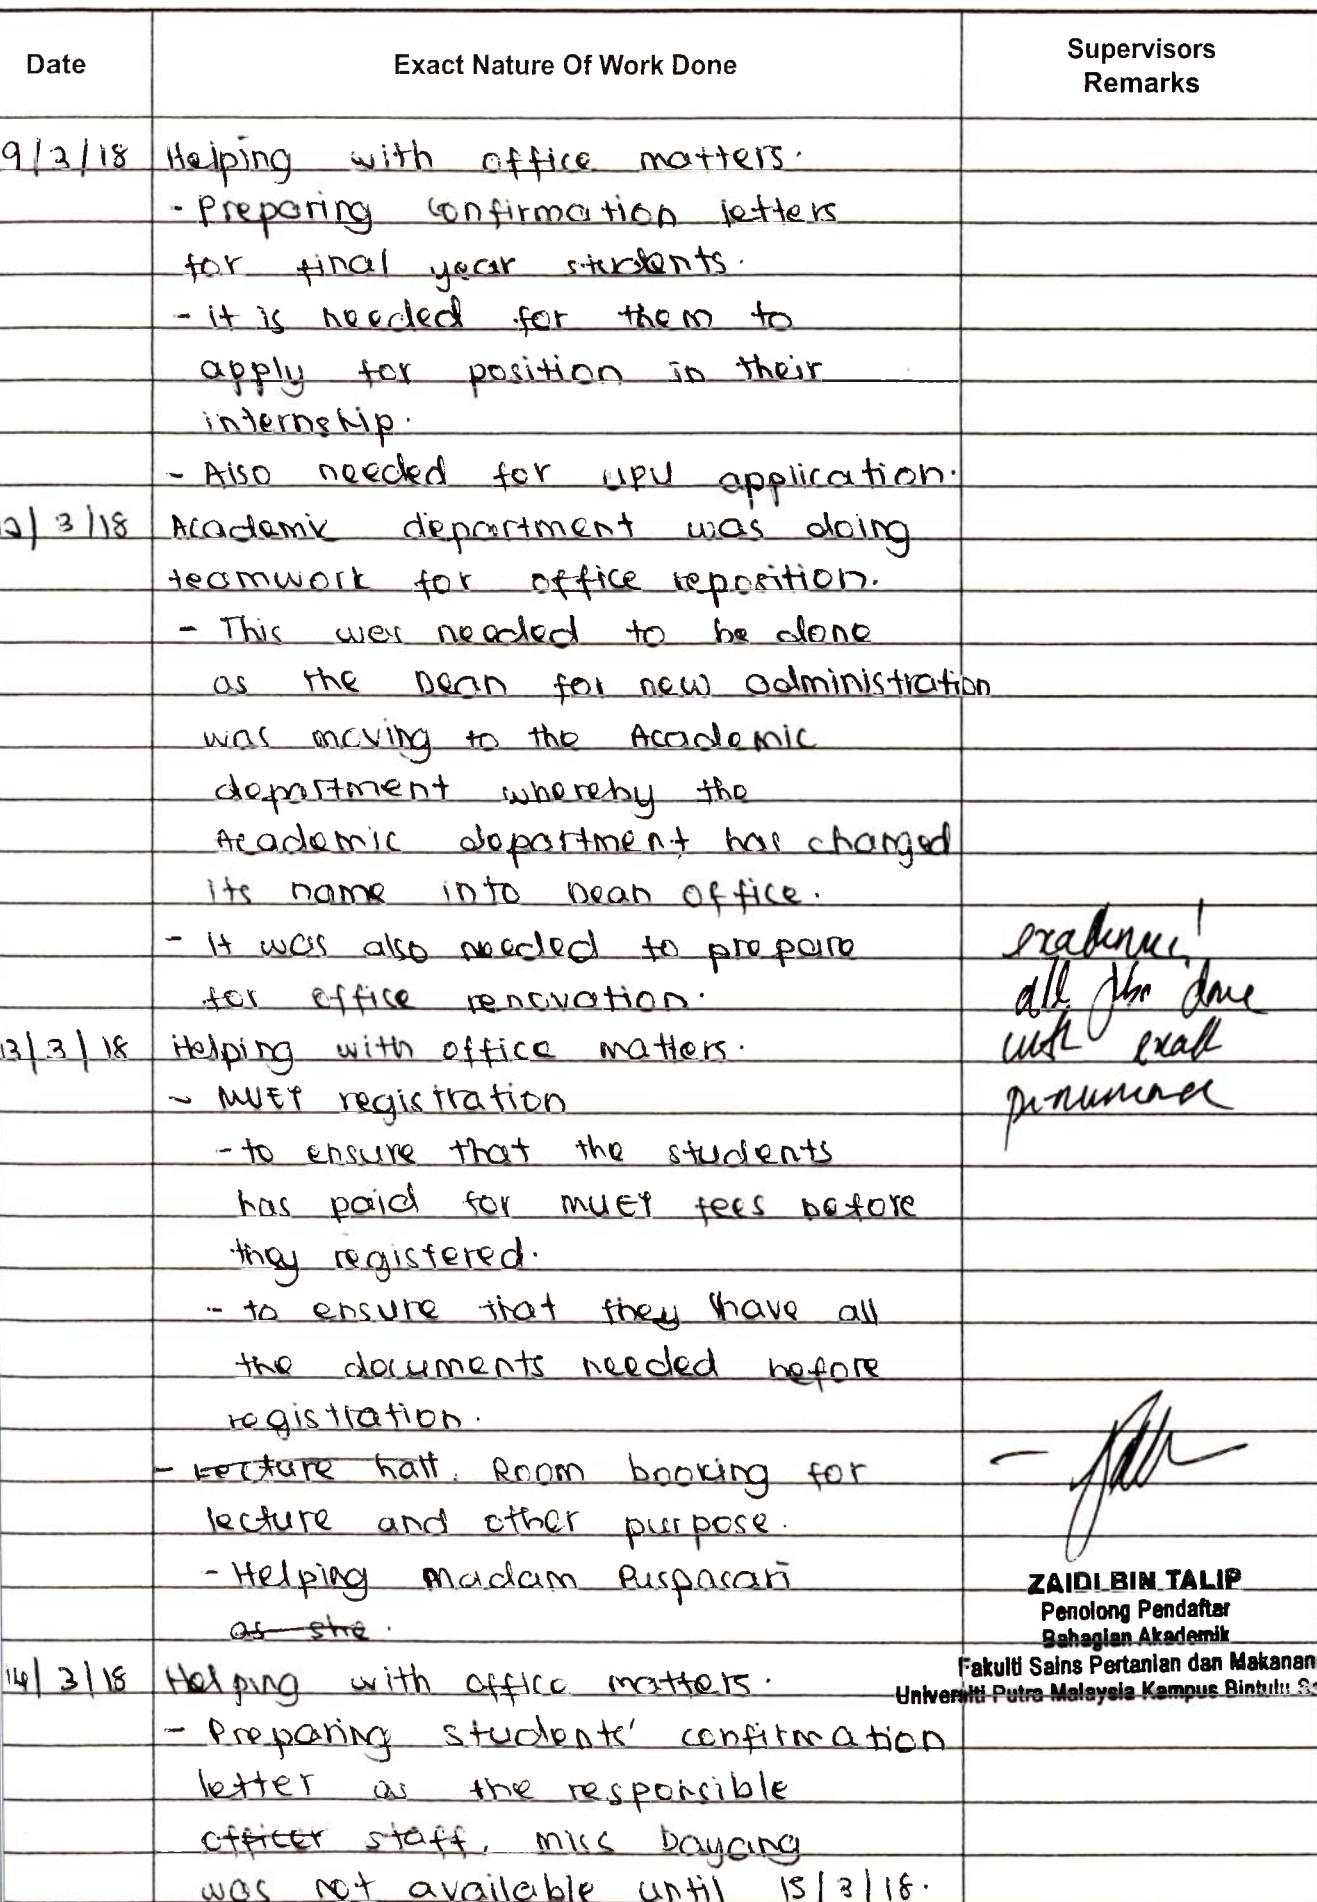 Date Exact Nature Of Work Done Supervisors Remarks
9/3/18 Helping with office matters.
- Preparing confirmation letters
for final year students.
- it is needed for them to
apply for position in their
internship.
- Also needed for UPU application.
12/3/18 Academic department was doing
teamwork for office reposition.
- This was needed to be done
as the Dean for new administration
was moving to the Academic
department whereby the
Academic department has changed
its name into Dean office.
- it was also needed to prepare
for office renovation.
all job done
with
13/3/18 Helping with office matters.
- MUET registration
- to ensure that the students
has paid for MUET fees before
they registered.
- to ensure that they have all
the documents needed before
registration.
- Lecture hall. Room booking for
lecture and other purpose.
- Helping Madam Puspasari
as she.
ZAIDI BIN TALIP
Penolong Pendaftar
Bahagian Akademik
Fakulti Sains Pertanian dan Makanan
Universiti Putra Malaysia Kampus Bintulu
14/3/18 Helping with office matters.
- Preparing students' confirmation
letter as the responsible
officer staff, miss Dayang
was not available until 15/3/18.